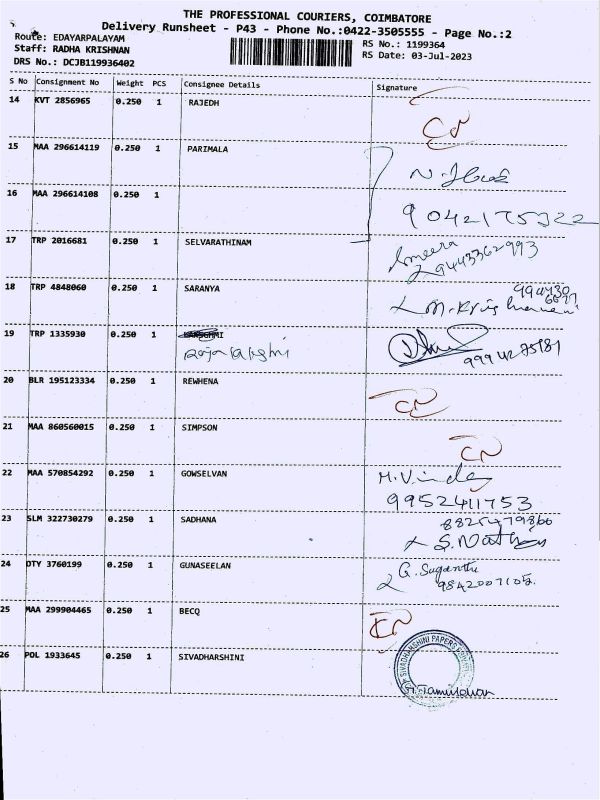 THE PROFESSIONAL COURIERS, COIMBATORE
Delivery Runsheet - P43 - Phone No.:0422-3505555 - Page No.:2
Route: EDAYARPALAYAM
Staff: RADHA KRISHNAN
DRS No.: DCJB119936402
RS No.: 1199364
RS Date: 03-Jul-2023
S No Consignment No Weight PCS Consignee Details Signature
14 KVT 2856965 0.250 1 RAJEDH
CN
15 MAA 296614119 0.250 1 PARIMALA
16 MAA 296614108 0.250 1
9042175322
17 TRP 2016681 0.250 1 SELVARATHINAM
9443362993
18 TRP 4848060 0.250 1 SARANYA
19 TRP 1335930 0.250 1
9994275181
20 BLR 195123334 0.250 1 REWHENA
CN
21 MAA 860560015 0.250 1 SIMPSON
CN
22 MAA 570854292 0.250 1 GOWSELVAN
9952411753
23 SLM 322730279 0.250 1 SADHANA
S. Nathiya
24 OTY 3760199 0.250 1 GUNASEELAN
G. Suganthi
25 MAA 299904465 0.250 1 BECQ
CN
26 POL 1933645 0.250 1 SIVADHARSHINI
SIVADHARSHINI PAPERS